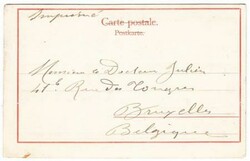 Imprimé
Carte postale.
Postkarte.
Monsieur le Docteur Julien
Rue du Congrès
Bruxelles
Belgique